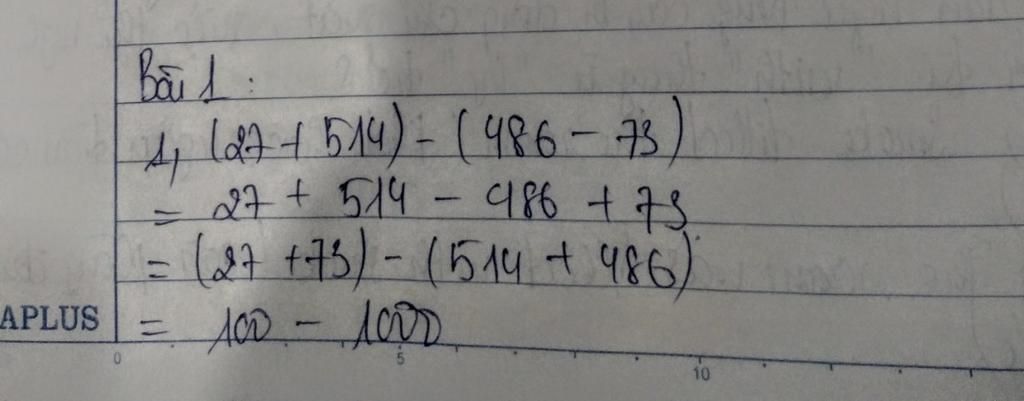 Bài 1 :
1, (27 + 514) - (486 - 73)
= 27 + 514 - 486 + 73
= (27 + 73) - (514 + 486)
= 100 - 1000
APLUS
0 5 10